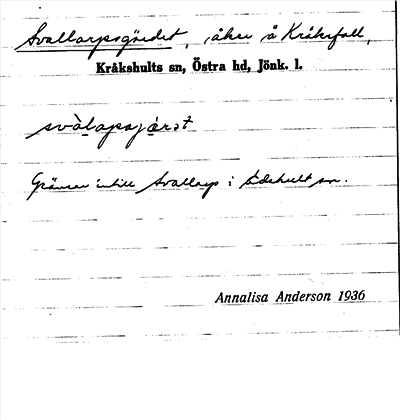 Svallarpsgärdet, åker å Kråkefall,
Kråkshults sn, Östra hd, Jönk. l.
svàlapsjárət
Gränsar intill Svallarp i Ökshult sn.
Annalisa Anderson 1936